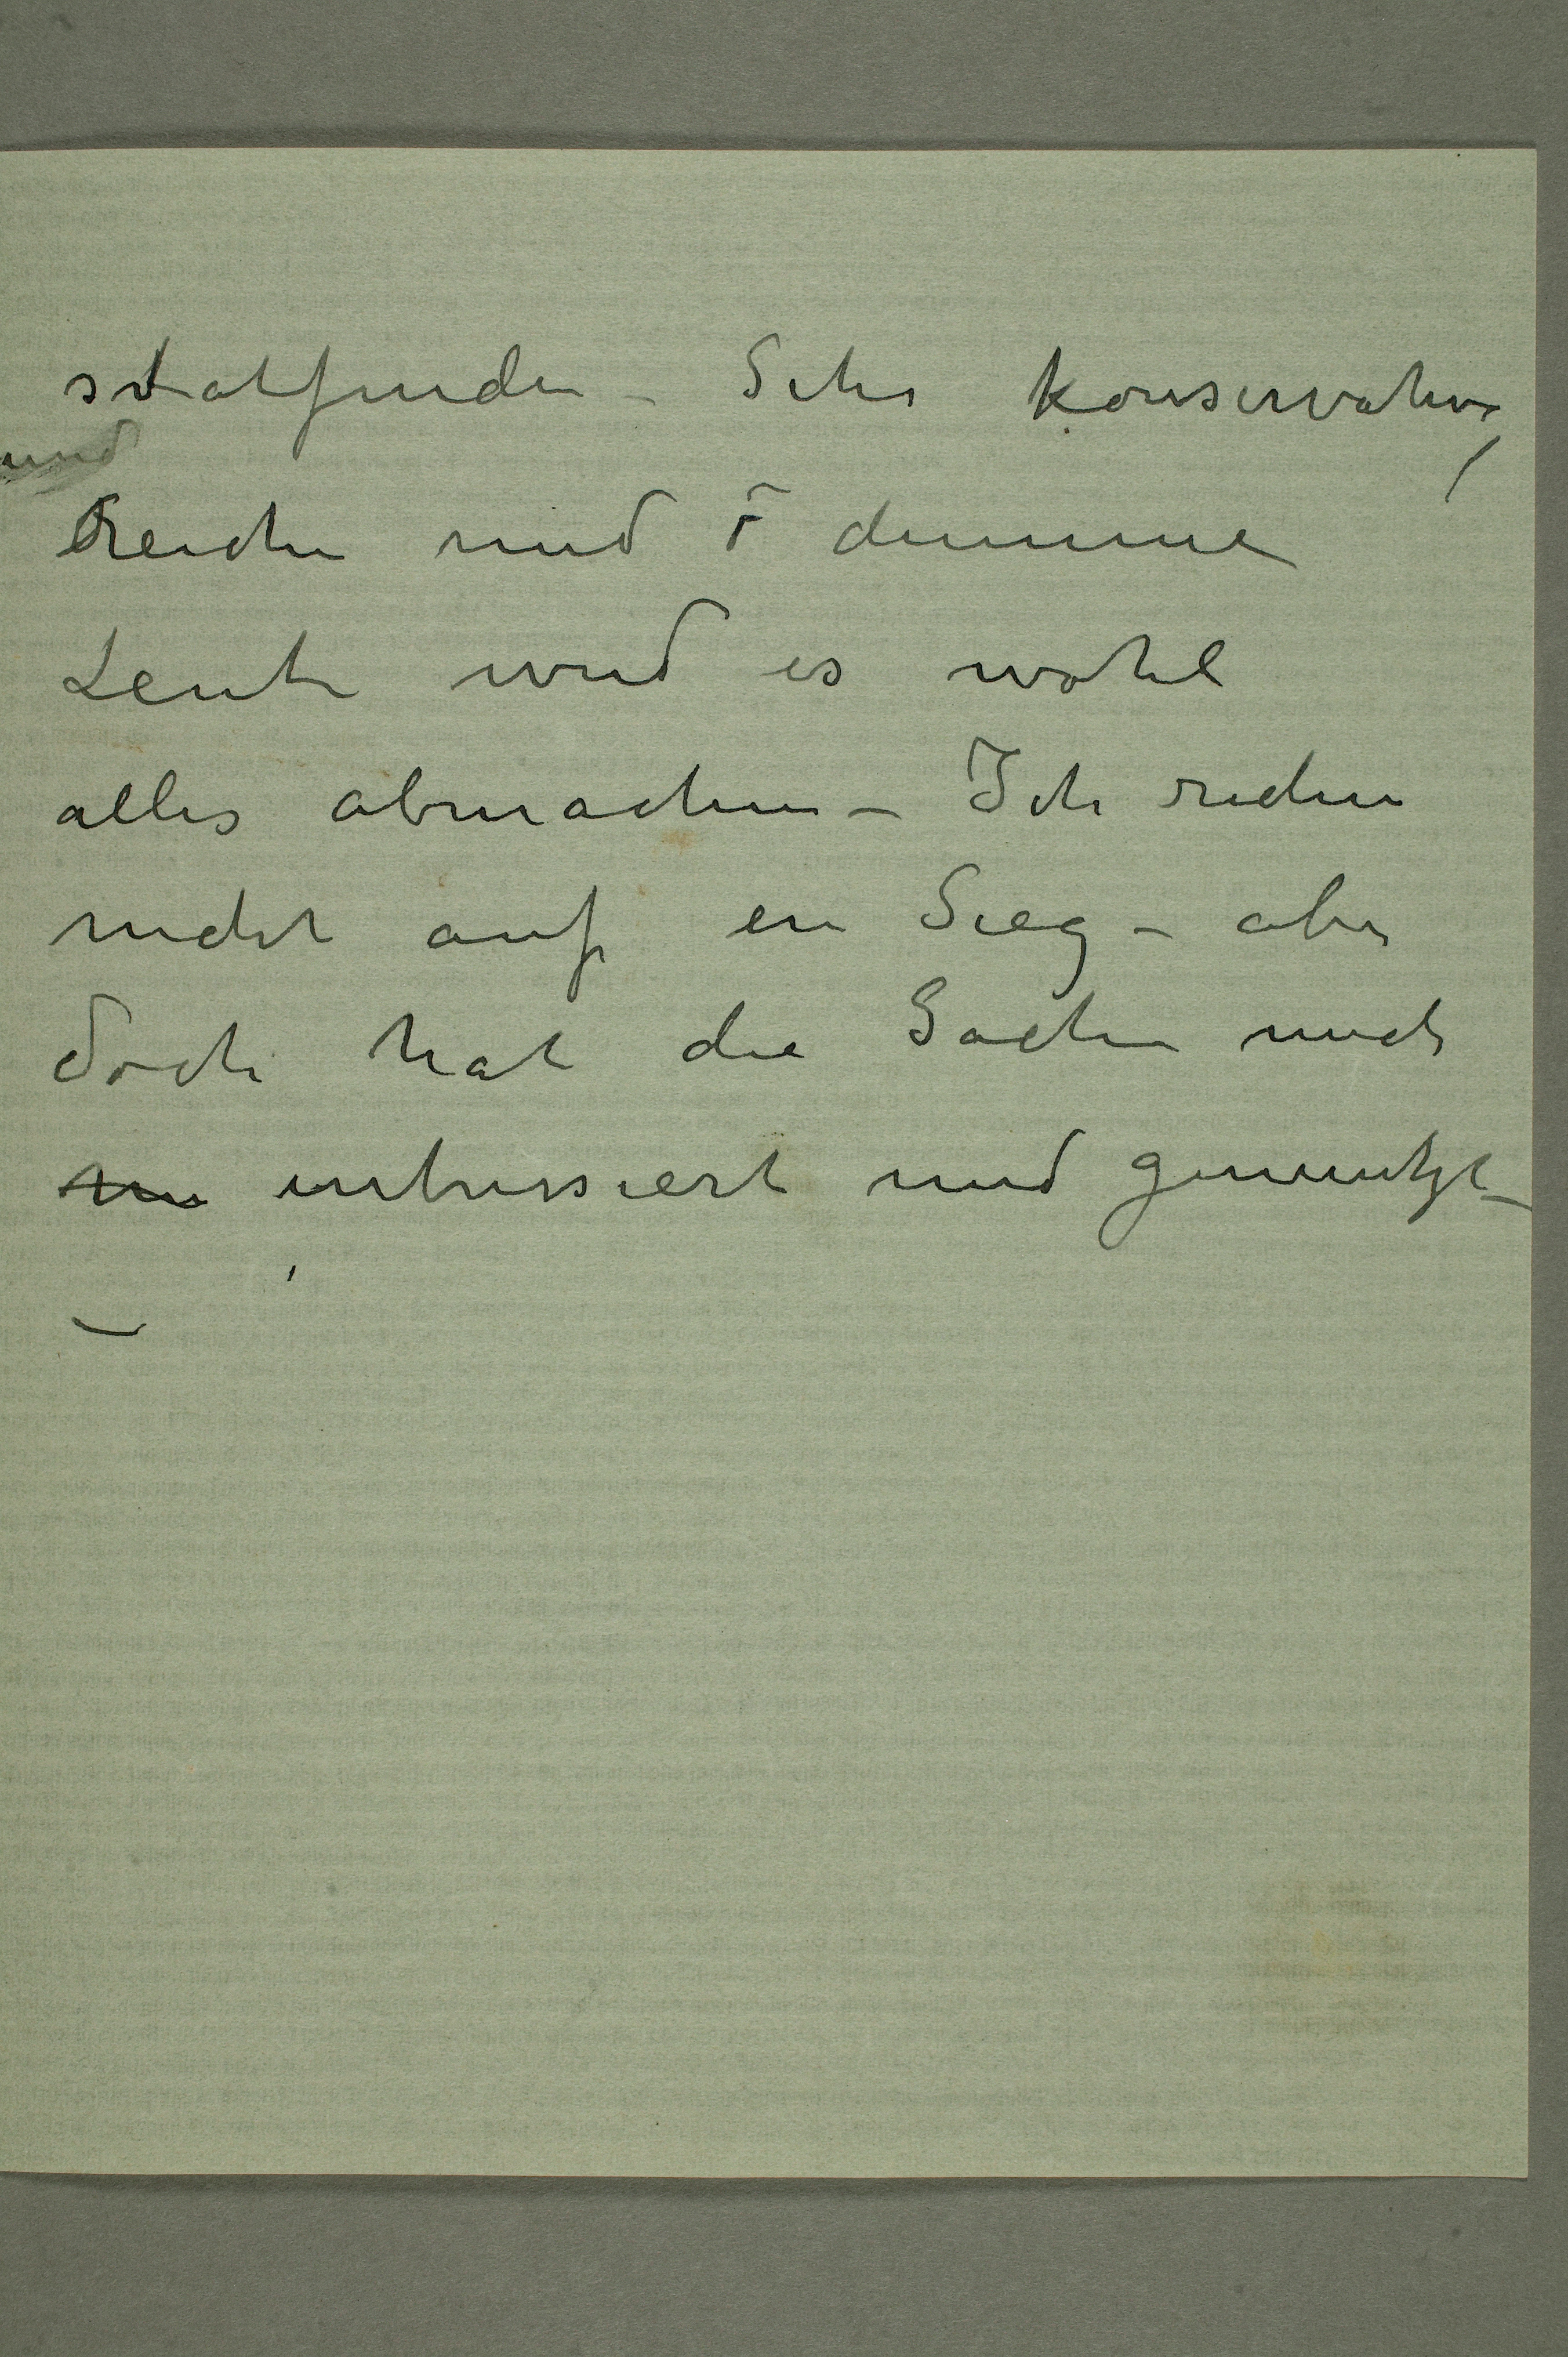 statfinden – Sehr konservative,
und
Reiche und dumme
Leute wird es wohl
alles abmachen – Ich rechne
nicht auf en Sieg – aber
doch hat die Sache mich
intressiert und genuützt –
–